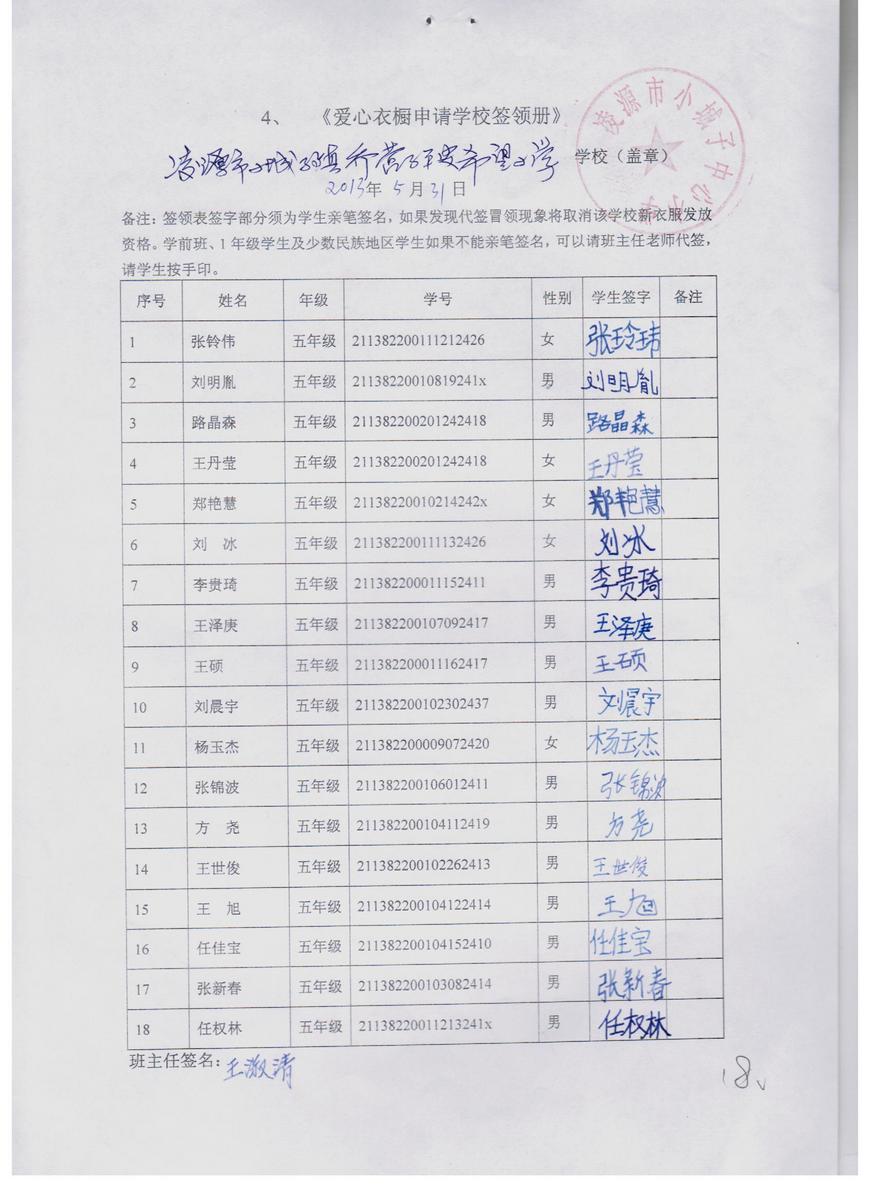 4、 《爱心衣橱申请学校签领册》
凌源市小城子中心小学
凌源市小城子镇乔营子 希望小学 学校（盖章）
2013年 5月 31日
备注：签领表签字部分须为学生亲笔签名，如果发现代签冒领现象将取消该学校新衣服发放
资格。学前班、1年级学生及少数民族地区学生如果不能亲笔签名，可以请班主任老师代签，
请学生按手印。
序号 姓名 年级 学号 性别 学生签字 备注
1 张铃伟 五年级 211382200111212426 女 张玲玮
2 刘明胤 五年级 21138220010819241x 男 刘明胤
3 路晶森 五年级 211382200201242418 男 路晶森
4 王丹莹 五年级 211382200201242418 女 王丹莹
5 郑艳慧 五年级 21138220010214242x 女 郑艳慧
6 刘 冰 五年级 211382200111132426 女 刘冰
7 李贵琦 五年级 211382200011152411 男 李贵琦
8 王泽庚 五年级 211382200107092417 男 王泽庚
9 王硕 五年级 211382200011162417 男 王硕
10 刘晨宇 五年级 211382200102302437 男 刘晨宇
11 杨玉杰 五年级 211382200009072420 女 杨玉杰
12 张锦波 五年级 211382200106012411 男 张锦波
13 方 尧 五年级 211382200104112419 男 方尧
14 王世俊 五年级 211382200102262413 男 王世俊
15 王 旭 五年级 211382200104122414 男 王旭
16 任佳宝 五年级 211382200104152410 男 任佳宝
17 张新春 五年级 211382200103082414 男 张新春
18 任权林 五年级 21138220011213241x 男 任权林
班主任签名：王淑清
18、